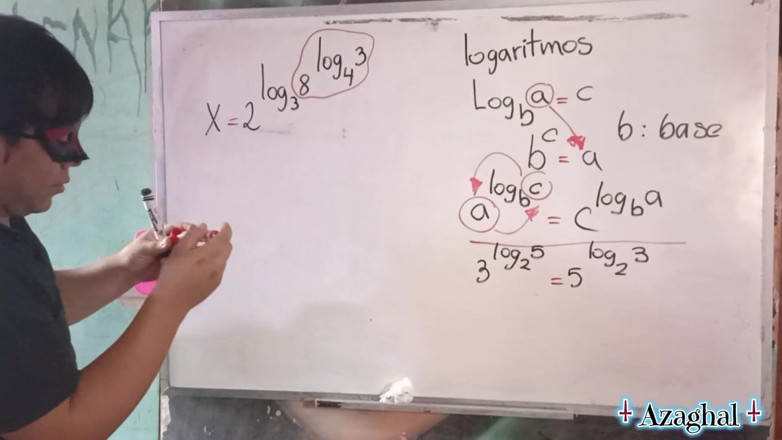 X = 2^{log_3 8^{log_4 3}}
logaritmos
Log_b a = c
b^c = a
b : base
a^{log_b c} = c^{log_b a}
3^{log_2 5} = 5^{log_2 3}
Azaghal